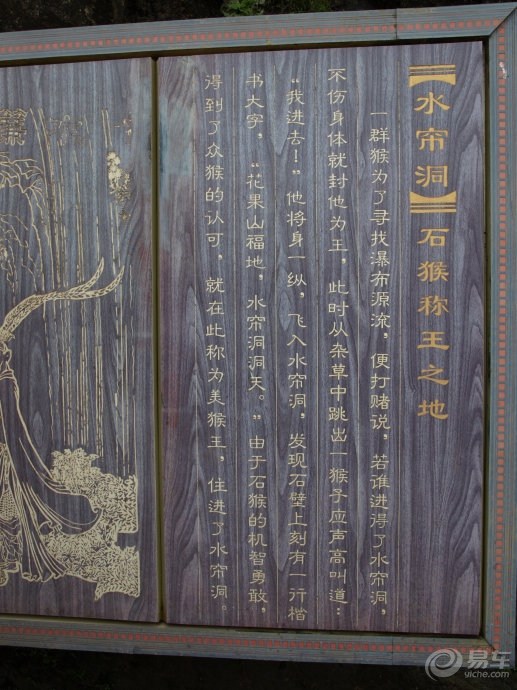 【水帘洞】石猴称王之地
一群猴为了寻找瀑布源流，便打赌说，若谁进得了水帘洞，
不伤身体就封他为王，此时从杂草中跳出一猴子应声高叫道：
“我进去！”他将身一纵，飞入水帘洞，发现石壁上刻有一行楷
书大字，“花果山福地，水帘洞洞天。”由于石猴的机智勇敢，
得到了众猴的认可，就在此称为美猴王，住进了水帘洞
易车
yiche.com